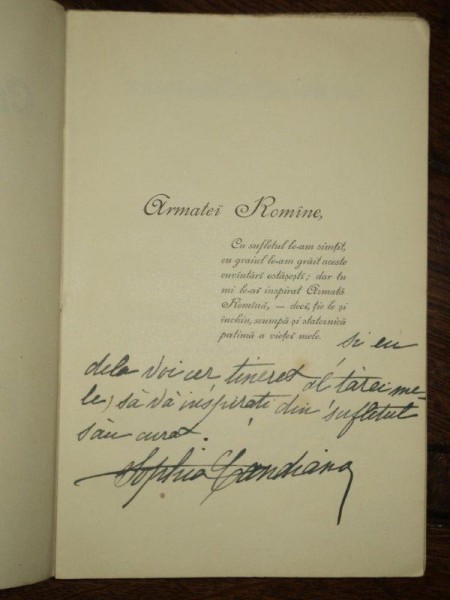 Armateĭ Romîne,
Cu sufletul le-am simțit,
cu graiul le-am grăit aceste
cuvîntărĭ ostășeștĭ; dar tu
mi le-aĭ inspirat Armată
Romînă, — decĭ, ție le și
închin, scumpă și statornică
patimă a vieței mele.
și eu
dela voi cer, tineret al țărei me-
le, să vă inspirați din sufletul
său curat.
Sophia Candiano